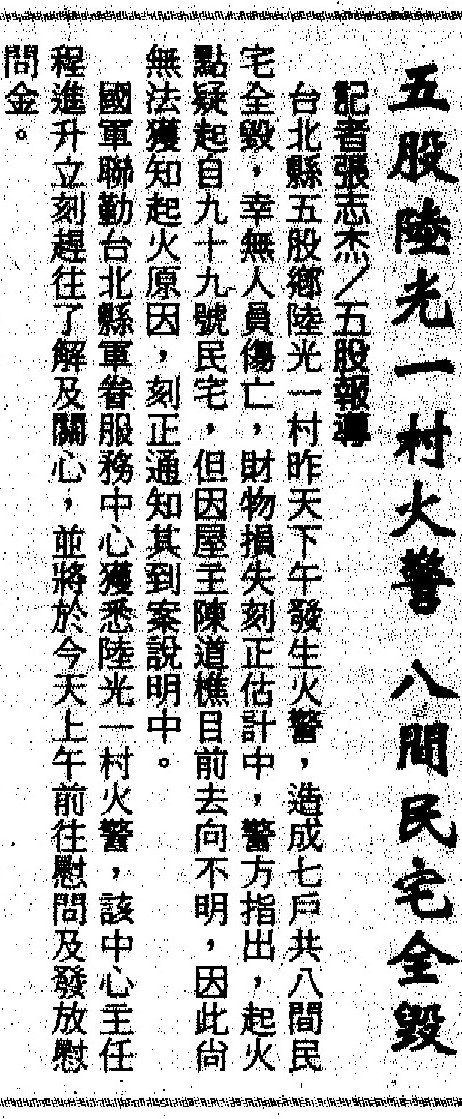 五股陸光一村火警 八間民宅全毀
記者張志杰／五股報導
台北縣五股鄉陸光一村昨天下午發生火警，造成七戶共八間民
宅全毀，幸無人員傷亡，財物損失刻正估計中，警方指出，起火
點疑起自九十九號民宅，但因屋主陳道樵目前去向不明，因此尚
無法獲知起火原因，刻正通知其到案說明中。
國軍聯勤台北縣軍眷服務中心獲悉陸光一村火警，該中心主任
程進升立刻趕往了解及關心，並將於今天上午前往慰問及發放慰
問金。